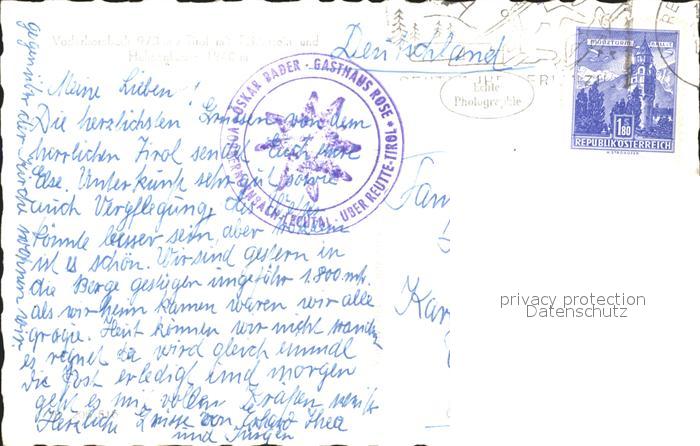 Vorderhornbach 973 m Tirol mit und
1760 m
Deutschland
MÜNZTURM HALL i. T.
1.80
S
REPUBLIK ÖSTERREICH
Echte
Photographie
OSKAR BADER · GASTHAUS ROSE · VORDERHORNBACH-LECHTAL · ÜBER REUTTE-TIROL
Meine Lieben!
Die herzlichsten Grüsse von dem
herrlichen Tirol sendet Euch Eure
Else. Unterkunft sehr gut sowie
auch Verpflegung, das
könnte besser sein, aber
ist es schön. Wir sind gestern in
die Berge gestiegen ungefähr 1.800 mtr.
als wir heim kamen waren wir alle
groggie. Heut können wir nicht wandern
es regnet da wird gleich einmal
die Post erledigt und morgen
geht es mit vollen Kraften weiter
Herzliche Grüsse von Erhard Thea
und Jürgen
gegenüber der Kirche wohnen wir
Fam
Kar
privacy protection
Datenschutz